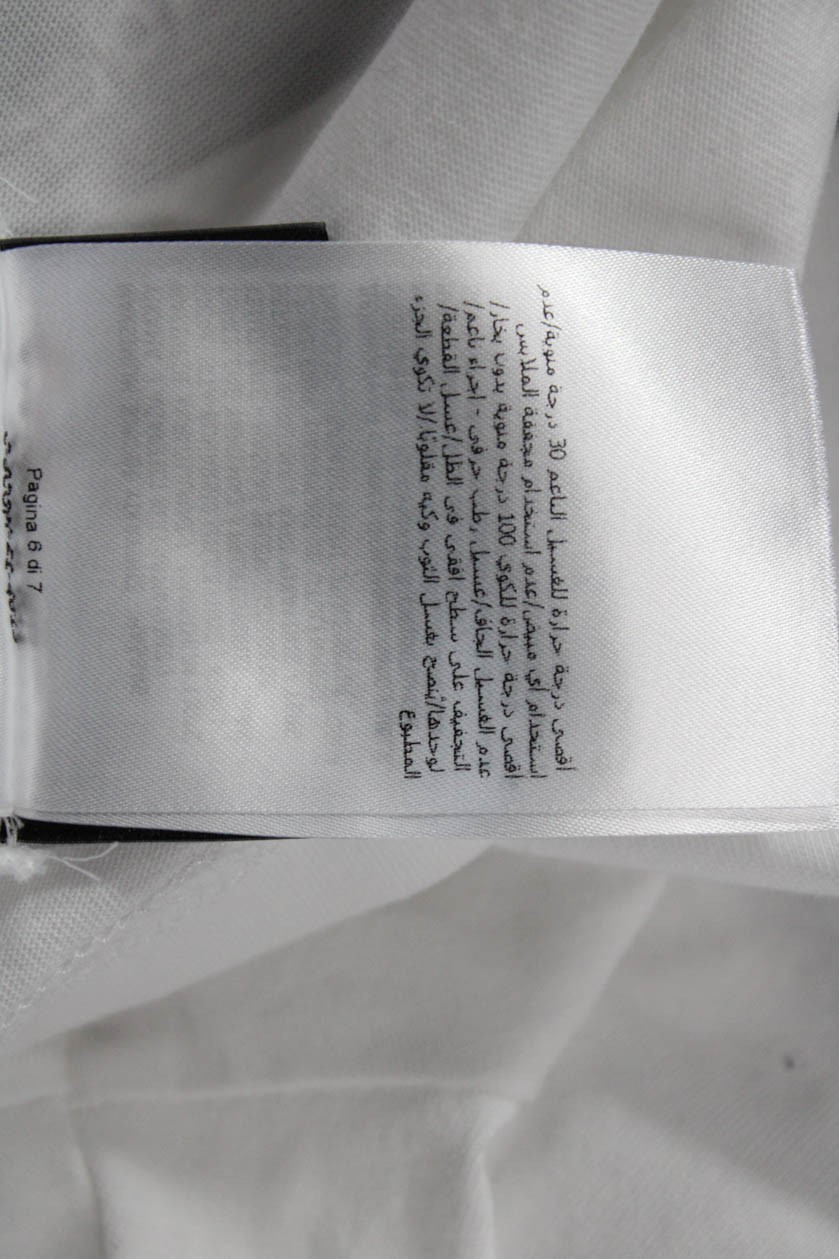 اقصى درجة حرارة للغسيل الناعم 30 درجة مئوية/عدم
استخدام أي مبيض/عدم استخدام مجففة الملابس
اقصى درجة حرارة للكوي 100 درجة مئوية بدون بخار/
عدم الغسيل الجاف/غسيل رطب حرفى - اجراء ناعم/
التجفيف على سطح افقى فى الظل/غسل القطعة/
لوحدها/يُنصح بغسل الثوب وكيه مقلوبًا/لا تكوي الجزء
المطبوع
Pagina 6 di 7